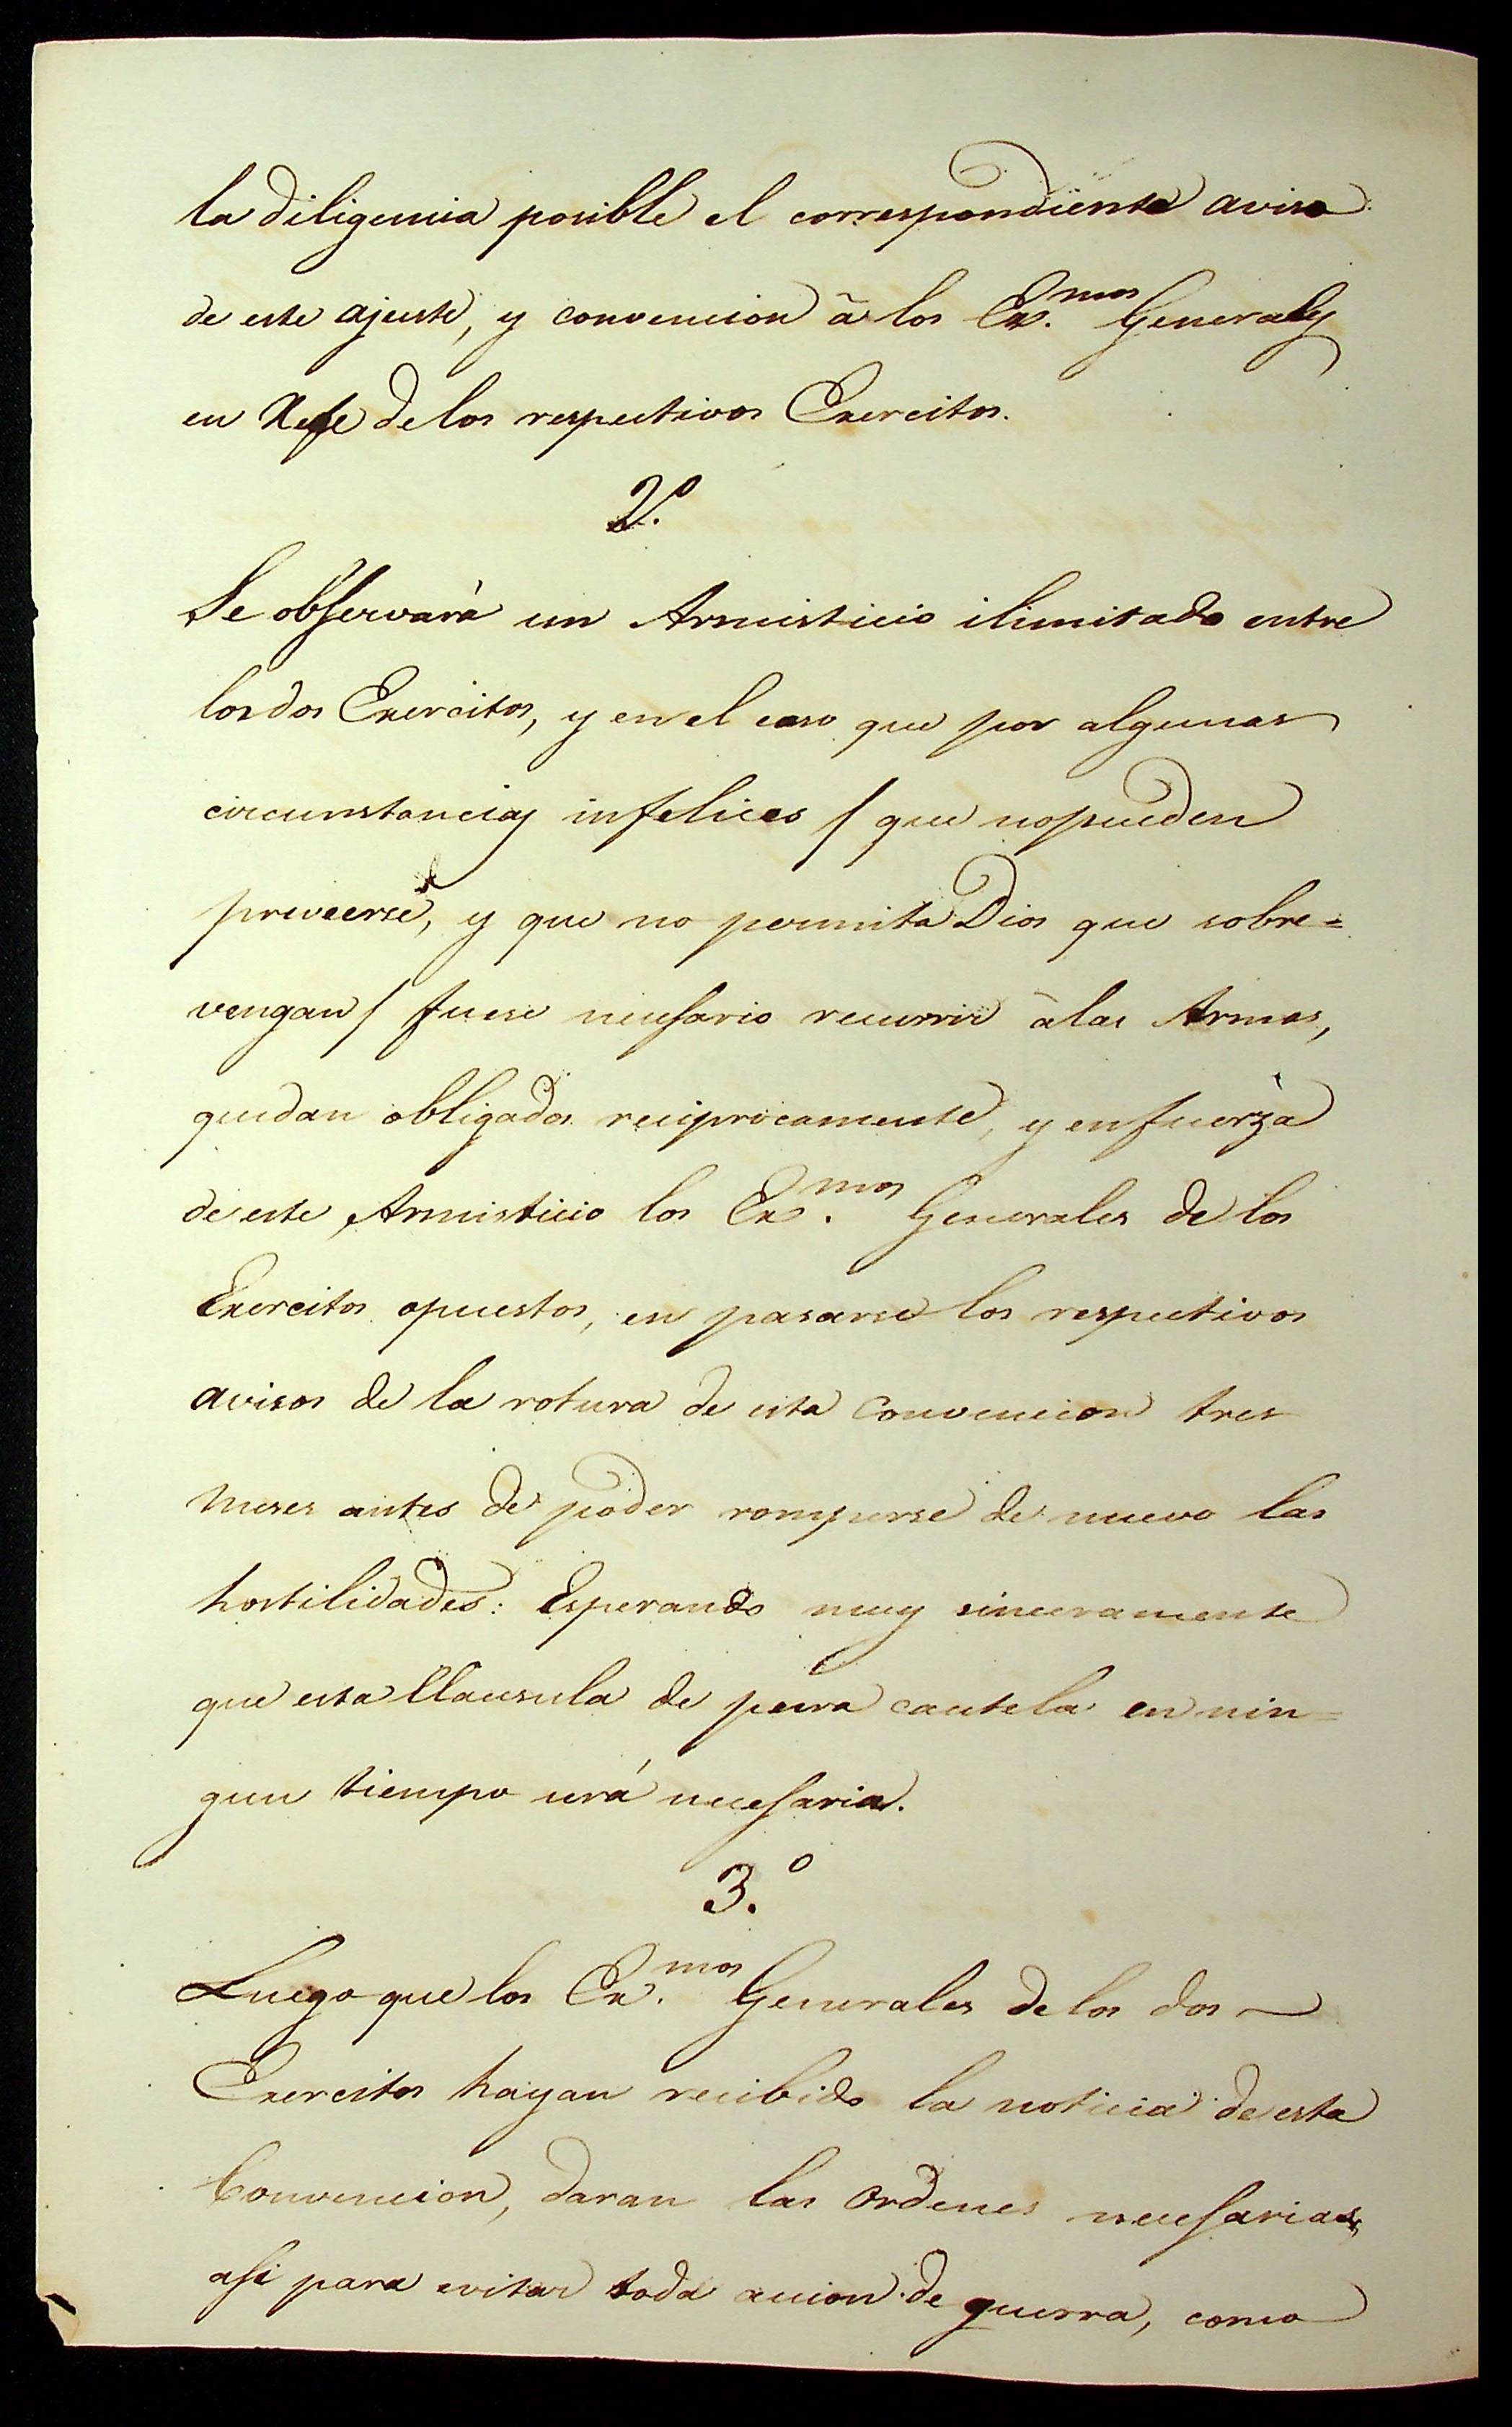 la diligencia posible el correspondiente aviso
de este ajuste, y convencion â los Ex.mos Generales
en Xefe de los respectivos Exercitos.
2.º
Se observarà un Armisticio ilimitado entre
los dos Exercitos, y en el caso que por algunas
circunstancias infelices / que no pueden
preveerse, y que no permita Dios que sobre=
vengan / fuese necesario recurrir â las Armas,
quedan obligados reciprocamente, y en fuerza
de este Armisticio los Ex.mos Generales de los
Exercitos opuestos, en pasarse los respectivos
avisos de la rotura de esta Convencion tres
meses antes de poder romperse de nuevo las
hostilidades: Esperando muy sinceramente
que esta Clausula de pura cautela en nin=
gun tiempo será necesaria.
3.º
Luego que los Ex.mos Generales de los dos
Exercitos hayan recibido la noticia de esta
Convencion, daran las Ordenes necesarias,
asi para evitar toda accion de guerra, como